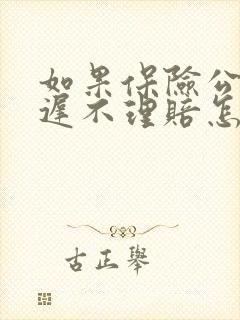 如果保險公
遲不理賠怎
古正舉